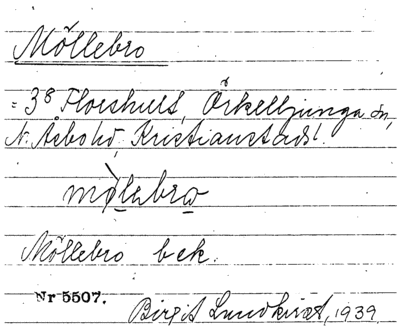 Möllebro
= 3⁸ Floeshult, Örkelljunga sn,
N. Åsbo hd, Kristianstads l.
mòlebro
Möllebro bek.
Nr 5507.
Birgit Lundkvist, 1939.